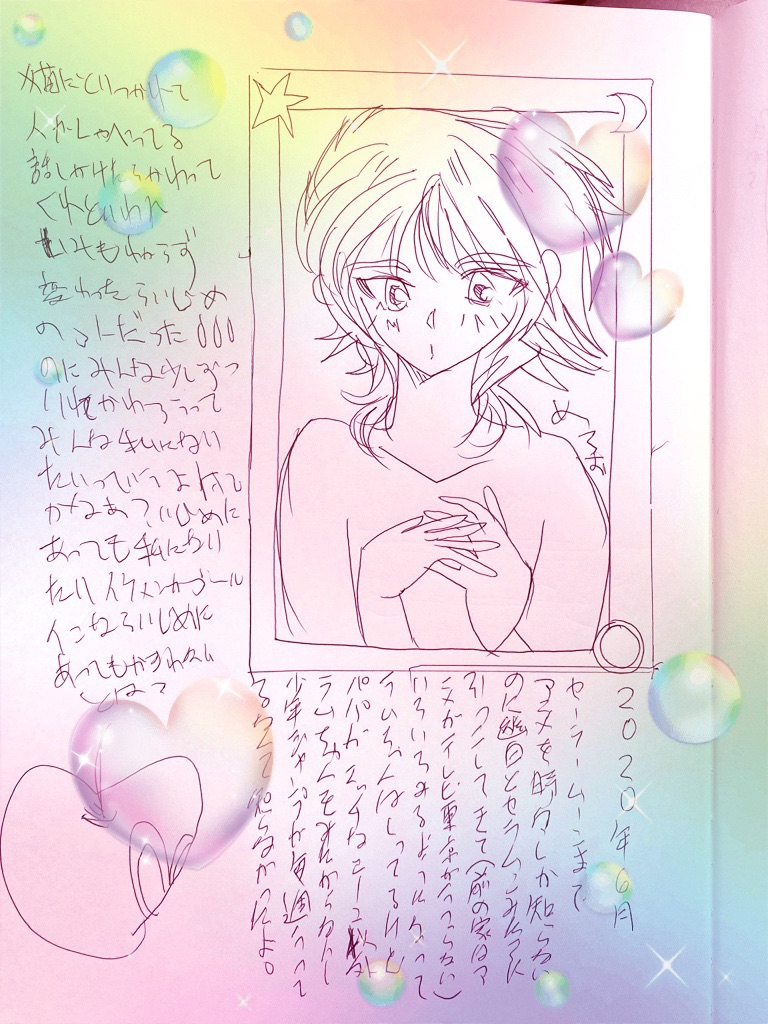 猫にとりつかれて
人がしゃべってる
話しかけたらかわって
くれといわれ
もわからず
変わったらいじめ
の だった
のにみんな少しずつ
かわろうって
みんな私になり
たいっていう
あ?いじめに
あっても私になり
たい イケメンがゴール
インならいじめに
あってもかまわん
とは?
めろず
2020年6月
セーラームーンまで
アニメを時々しか知らない
のに幽白とセラムンみるのに
引っこしてきて(前の家はアニ
メがテレビ東京がうつらない)
いろいろみるようになって
ラムちゃんはしってるけど
パパがエッチな 以外
ラムちゃんをみたがらないし
少年ジャンプが毎週うって
るなんて知らなかったよ。